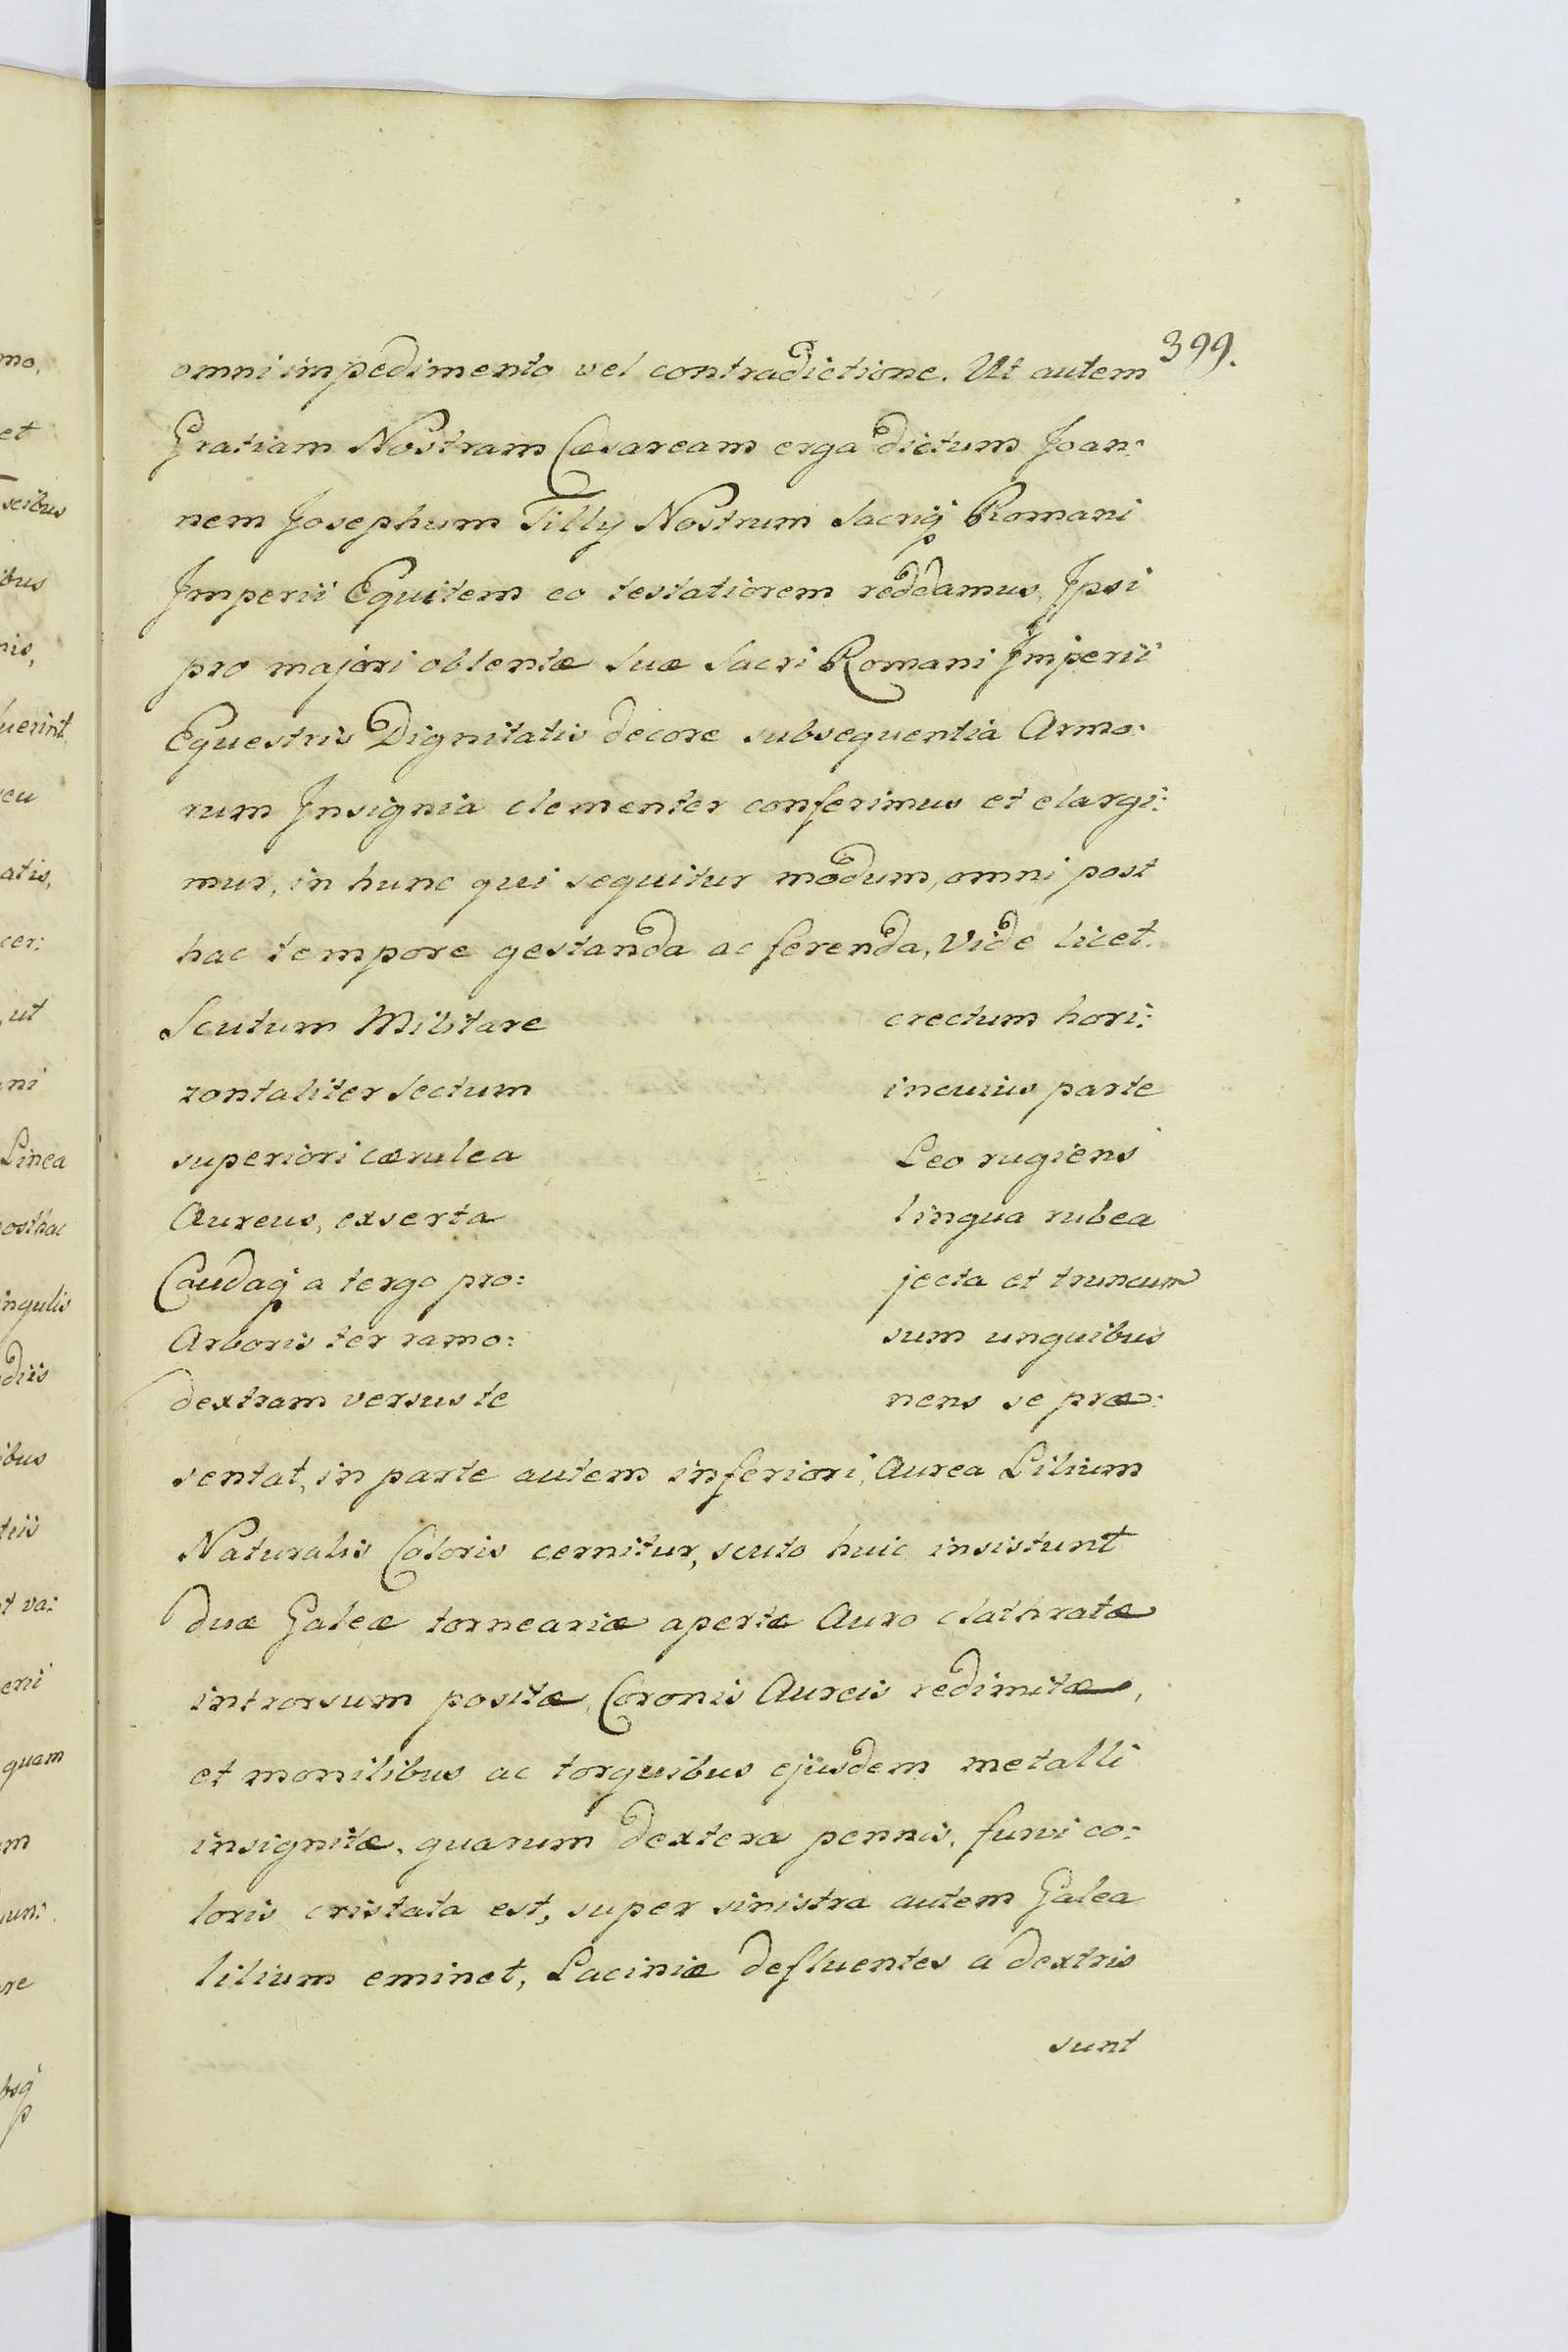 mo,
et
scibus
ibus
nis,
luerint
seu
atis,
cer:
, ut
ni
Linea
osthac
ingulis
diis
ibus
teis
t va:
erii
quam
m
re
399.
omni impedimento vel contradictione. Ut autem
Gratiam Nostram Cæsaream erga dictum Joan:
nem Josephum Tilly Nostrum Sacriq Romani
Imperii Equitem eo testatiorem reddamus, Ipsi
pro majori obtentæ suæ Sacri Romani Imperii
Equestris Dignitatis decore subsequentia Armo:
rum Insignia clementer conferimus et elargi:
mur, in hunc qui sequitur modum, omni post
hac tempore gestanda ac ferenda, Vide licet.
Scutum Militare erectum hori:
zontaliter sectum in cuius parte
superiori cærulea Leo rugiens
Aureus, exserta lingua rubea
Caudaq a tergo pro: jecta et truncum
Arboris ter ramo: sum unguibus
dextram versus te nens se præ:
sentat, in parte autem inferiori, Aurea Lilium
Naturalis Coloris cernitur, scuto huic insistunt
duæ Galeæ torneariæ apertæ Auro clathratæ
introrsum positæ, Coronis Aureis redimitæ,
et monilibus ac torquibus ejusdem metalli
insignitæ, quarum dextera pennis, furvi co:
loris cristata est, super sinistra autem Galea
lilium eminet, Laciniæ defluentes a dextris
sunt